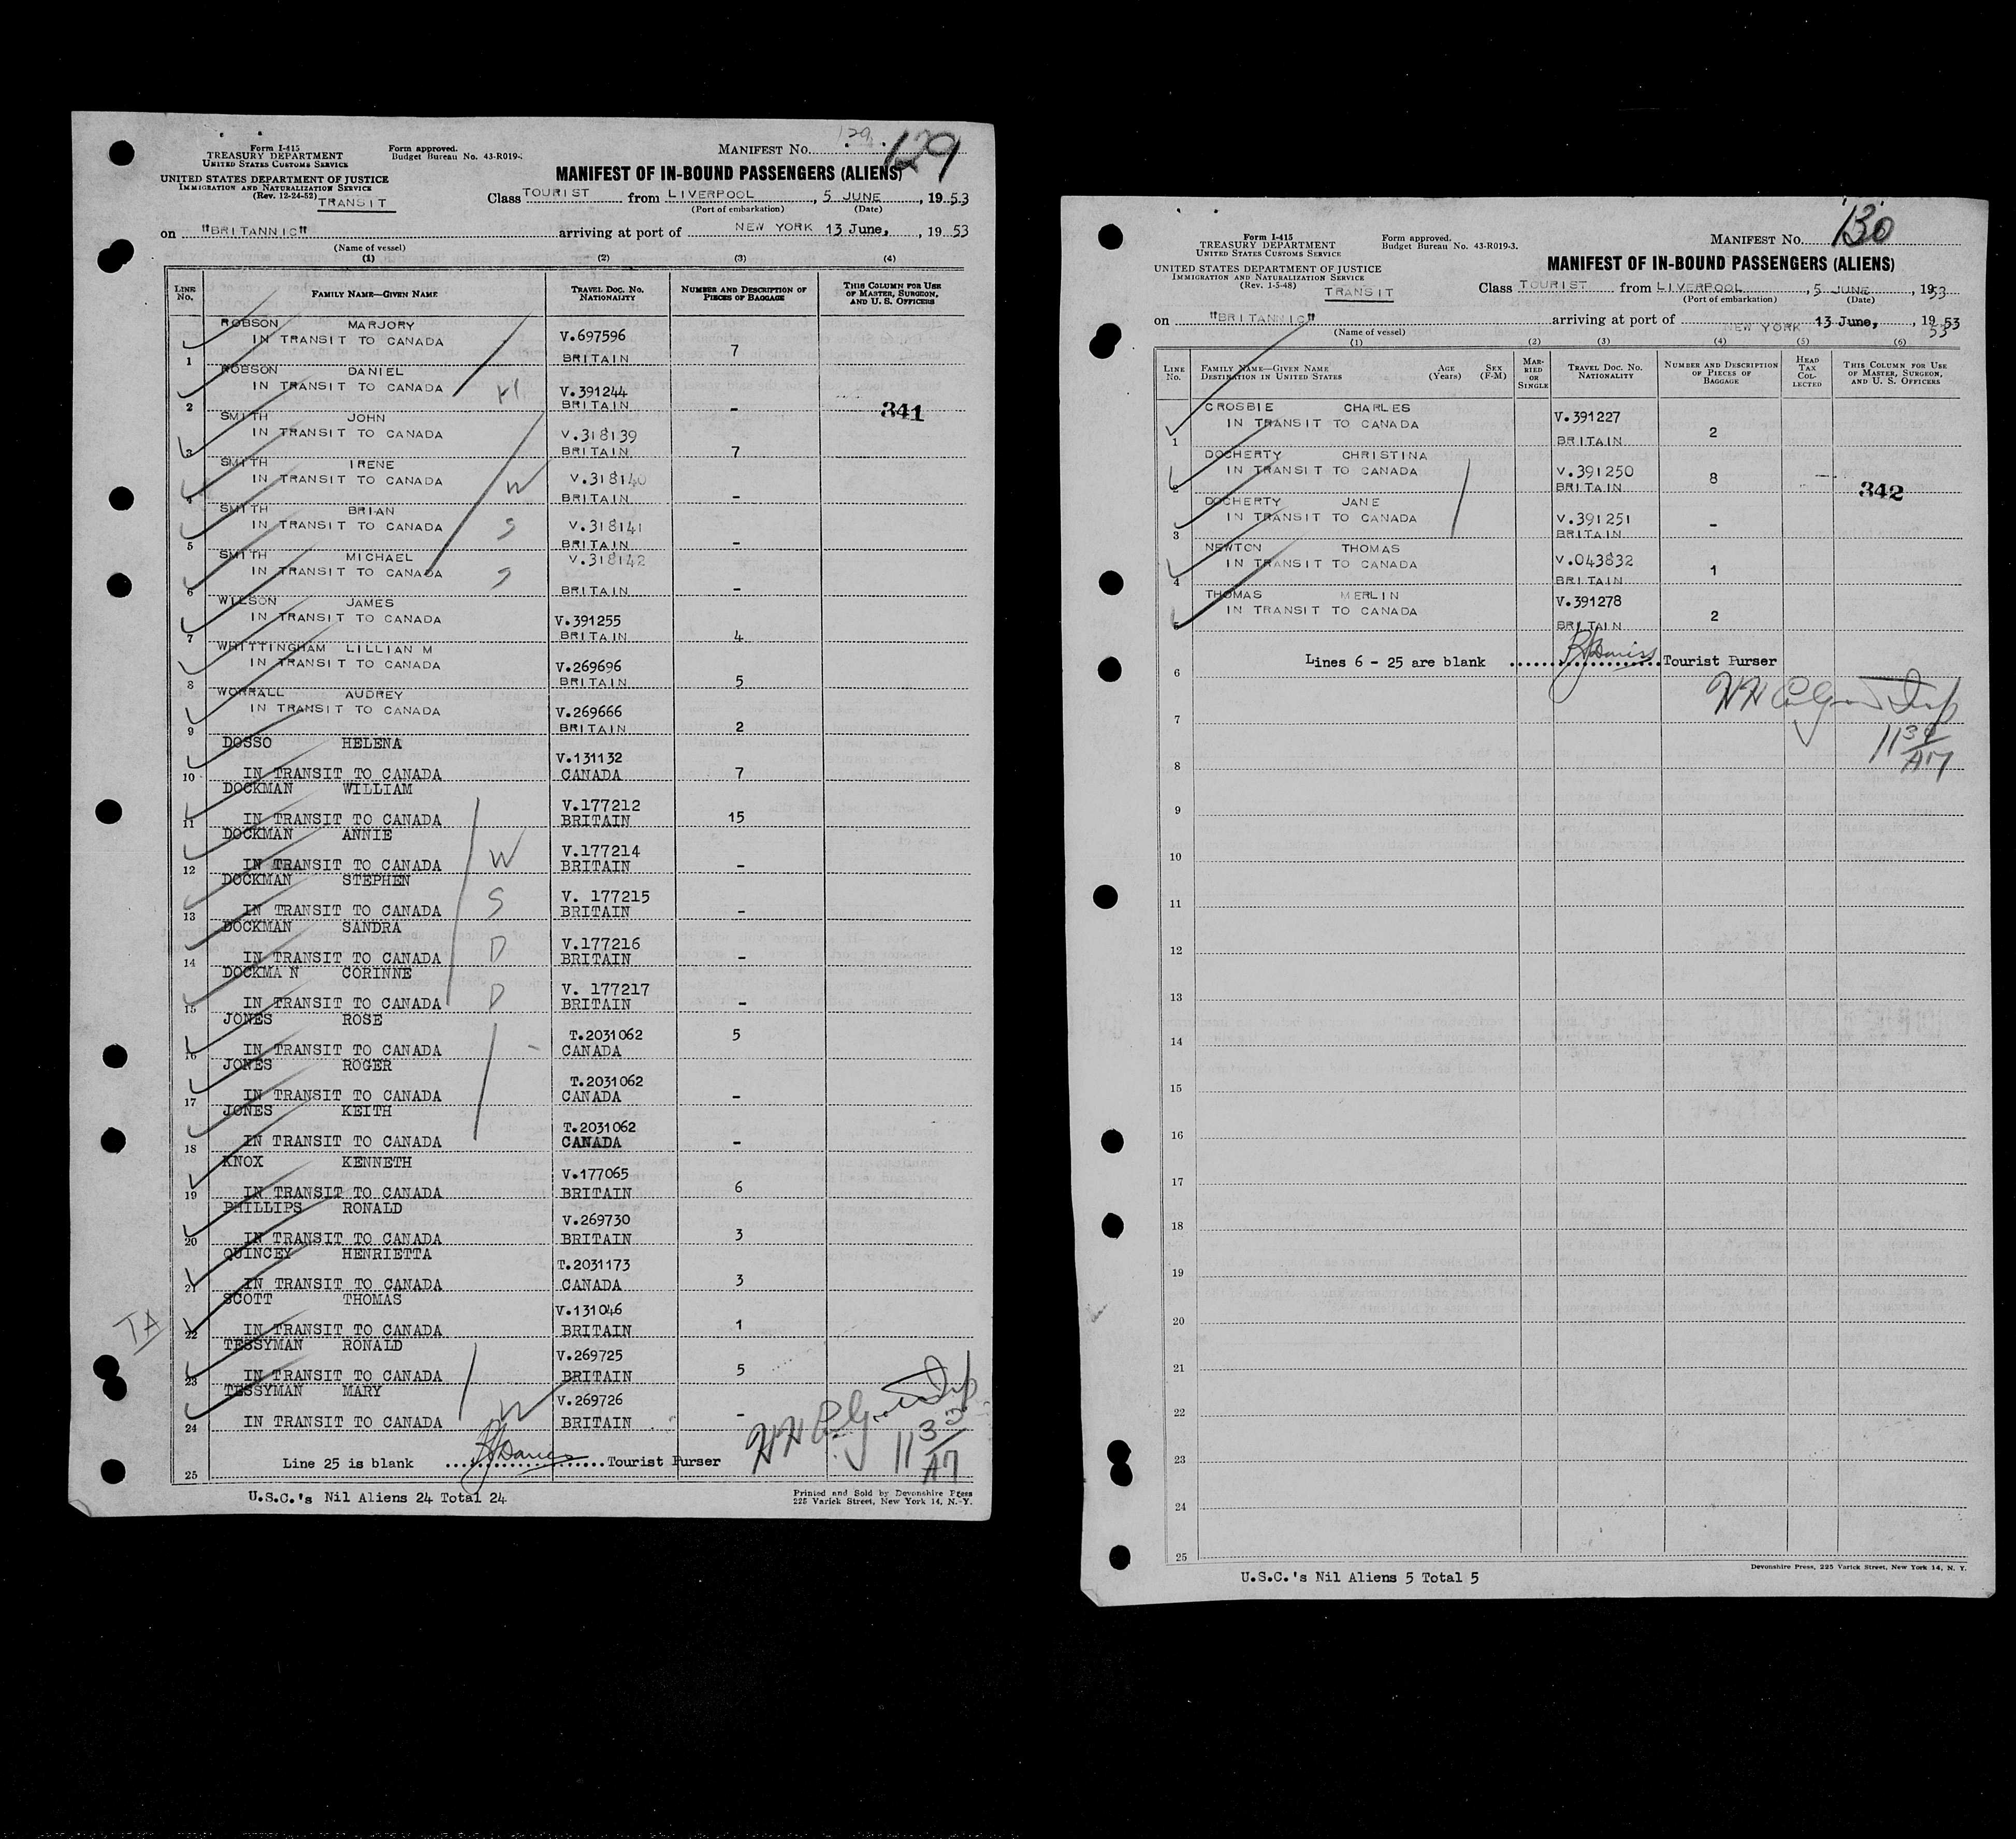 129
Form I-415
TREASURY DEPARTMENT
UNITED STATES CUSTOMS SERVICE
Form approved.
Budget Bureau No. 43-R019-
MANIFEST No. 129
UNITED STATES DEPARTMENT OF JUSTICE
IMMIGRATION AND NATURALIZATION SERVICE
(Rev. 12-24-52) TRANSIT
MANIFEST OF IN-BOUND PASSENGERS (ALIENS)
Class TOURIST from LIVERPOOL, 5 JUNE, 1953
(Port of embarkation) (Date)
on "BRITANNIC" arriving at port of NEW YORK 13 June, 1953
(Name of vessel)
(1) (2) (3) (4)
LINE No. FAMILY NAME—GIVEN NAME TRAVEL DOC. NO. NATIONALITY NUMBER AND DESCRIPTION OF PIECES OF BAGGAGE THIS COLUMN FOR USE OF MASTER, SURGEON, AND U. S. OFFICERS
ROBSON MARJORY
1 IN TRANSIT TO CANADA V.697596 BRITAIN 7
ROBSON DANIEL
2 IN TRANSIT TO CANADA H V.391244 BRITAIN - 341
SMITH JOHN
3 IN TRANSIT TO CANADA V.318139 BRITAIN 7
SMITH IRENE
4 IN TRANSIT TO CANADA W V.318140 BRITAIN -
SMITH BRIAN
5 IN TRANSIT TO CANADA S V.318141 BRITAIN -
SMITH MICHAEL
6 IN TRANSIT TO CANADA S V.318142 BRITAIN -
WILSON JAMES
7 IN TRANSIT TO CANADA V.391255 BRITAIN 4
WHITTINGHAM LILLIAN M
8 IN TRANSIT TO CANADA V.269696 BRITAIN 5
WORRALL AUDREY
9 IN TRANSIT TO CANADA V.269666 BRITAIN 2
DOSSO HELENA
10 IN TRANSIT TO CANADA V.131132 CANADA 7
DOCKMAN WILLIAM
11 IN TRANSIT TO CANADA V.177212 BRITAIN 15
DOCKMAN ANNIE
12 IN TRANSIT TO CANADA W V.177214 BRITAIN -
DOCKMAN STEPHEN
13 IN TRANSIT TO CANADA S V. 177215 BRITAIN -
DOCKMAN SANDRA
14 IN TRANSIT TO CANADA D V.177216 BRITAIN -
DOCKMA N CORINNE
15 IN TRANSIT TO CANADA D V. 177217 BRITAIN -
JONES ROSE
16 IN TRANSIT TO CANADA - T.2031062 CANADA 5
JONES ROGER
17 IN TRANSIT TO CANADA T.2031062 CANADA -
JONES KEITH
18 IN TRANSIT TO CANADA T.2031062 CANADA -
KNOX KENNETH
19 IN TRANSIT TO CANADA V.177065 BRITAIN 6
PHILLIPS RONALD
20 IN TRANSIT TO CANADA V.269730 BRITAIN 3
QUINCEY HENRIETTA
21 IN TRANSIT TO CANADA T.2031173 CANADA 3
SCOTT THOMAS
TA 22 IN TRANSIT TO CANADA V.131046 BRITAIN 1
TESSYMAN RONALD
23 IN TRANSIT TO CANADA V.269725 BRITAIN 5
TESSYMAN MARY
24 IN TRANSIT TO CANADA W V.269726 BRITAIN -
25 Line 25 is blank Tourist Purser
U.S.C.'s Nil Aliens 24 Total 24
Printed and Sold by Devonshire Press
225 Varick Street, New York 14, N. Y.
Form I-415
TREASURY DEPARTMENT
UNITED STATES CUSTOMS SERVICE
Form approved.
Budget Bureau No. 43-R019-3.
MANIFEST No. 130
UNITED STATES DEPARTMENT OF JUSTICE
IMMIGRATION AND NATURALIZATION SERVICE
(Rev. 1-5-48) TRANSIT
MANIFEST OF IN-BOUND PASSENGERS (ALIENS)
Class TOURIST from LIVERPOOL, 5 JUNE, 1953
(Port of embarkation) (Date)
on "BRITANNIC" arriving at port of NEW YORK 13 June, 1953
53
(Name of vessel)
(1) (2) (3) (4) (5) (6)
LINE No. FAMILY NAME—GIVEN NAME DESTINATION IN UNITED STATES AGE (Years) SEX (F-M) MARRIED OR SINGLE TRAVEL DOC. NO. NATIONALITY NUMBER AND DESCRIPTION OF PIECES OF BAGGAGE HEAD TAX COLLECTED THIS COLUMN FOR USE OF MASTER, SURGEON, AND U. S. OFFICERS
CROSBIE CHARLES
1 IN TRANSIT TO CANADA V.391227 BRITAIN 2
DOCHERTY CHRISTINA
2 IN TRANSIT TO CANADA V.391250 BRITAIN 8 342
DOCHERTY JANE
3 IN TRANSIT TO CANADA V.391251 BRITAIN -
NEWTON THOMAS
4 IN TRANSIT TO CANADA V.043832 BRITAIN 1
THOMAS MERLIN
5 IN TRANSIT TO CANADA V.391278 BRITAIN 2
Lines 6 - 25 are blank Tourist Purser
6
7
8
9
10
11
12
13
14
15
16
17
18
19
20
21
22
23
24
25
U.S.C.'s Nil Aliens 5 Total 5
Devonshire Press, 225 Varick Street, New York 14, N. Y.